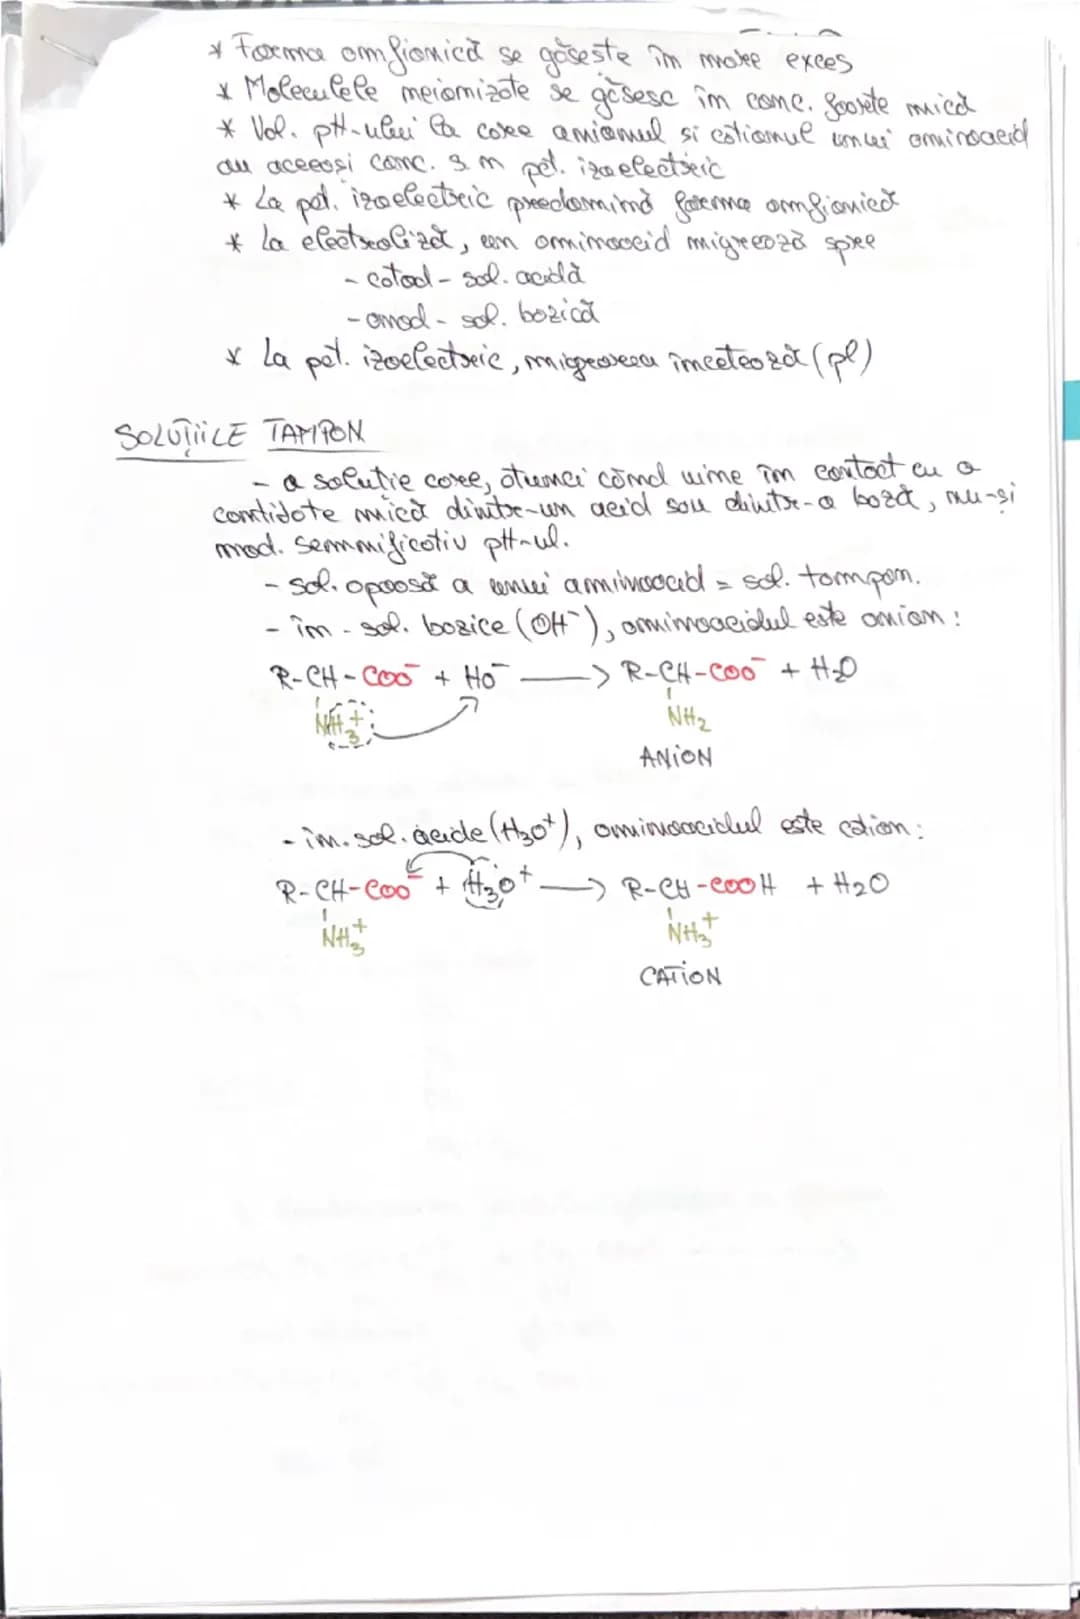 * Forma amfionică se găseste în mare exces
* Moleculele neionizate se găsesc în conc. foarte mică
* Val. pH-ului la care anionul si cationul unui aminoacid
au aceeași conc. s. n pct. izoelectric
* La pct. izoelectric predomină forma amfionică
* La electroliză, un aminoacid migrează spre
- catod - sol. acidă
- anod - sol. bazică
* La pct. izoelectric, migrarea încetează (pI)
SOLUȚIILE TAMPON
- o soluție care, atunci când vine în contact cu o
cantitate mică dintr-un acid sau dintr-o bază, nu-și
mod. semnificativ pH-ul.
- sol. apoasă a unui aminoacid = sol. tampon.
- în sol. bazice (OH⁻), aminoacidul este anion:
R-CH-COO⁻ + HO⁻ → R-CH-COO⁻ + H₂O
NH₃⁺ NH₂
ANION
- în sol. acide (H₃O⁺), aminoacidul este cation:
R-CH-COO⁻ + H₃O⁺ → R-CH-COOH + H₂O
NH₃⁺ NH₃⁺
CATION